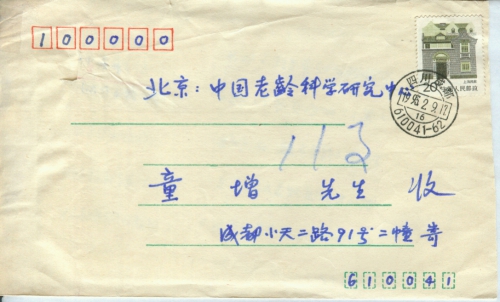 100000
20
中国人民邮政
四川成都
1995.2.9.17
16
610041-62
北京：中国老龄科学研究中心
113
童增 先生 收
成都小天二路91号二幢寄
610041